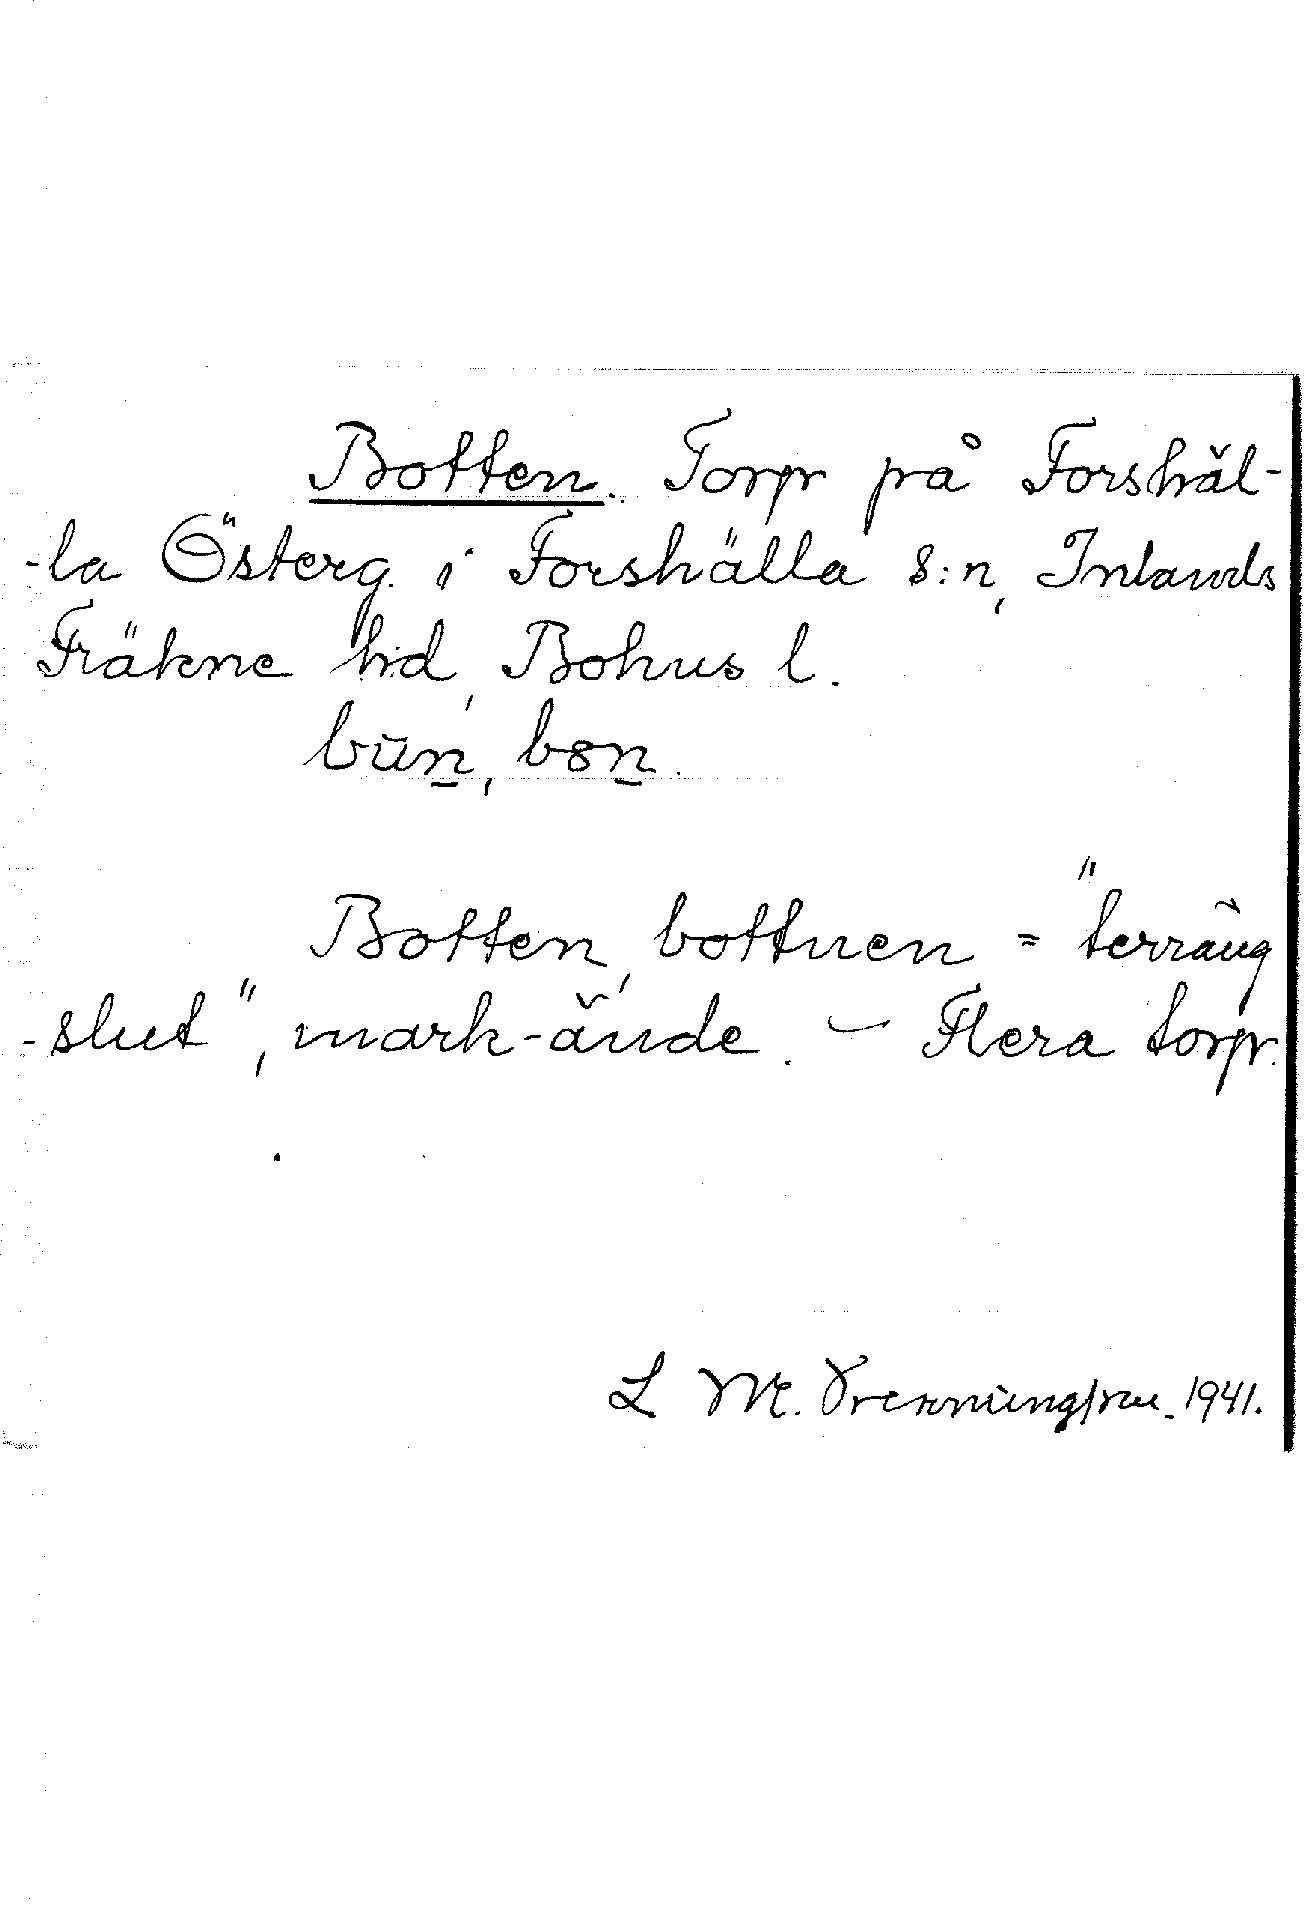 Botten. Torp på Forshäl-
-la Österg. i Forshälla s:n, Inlands
Fräkne hd, Bohus l.
būn, bon.
Botten, bottnen = "terräng
-slut", mark-ände. - Flera torp.
L M. 1941.